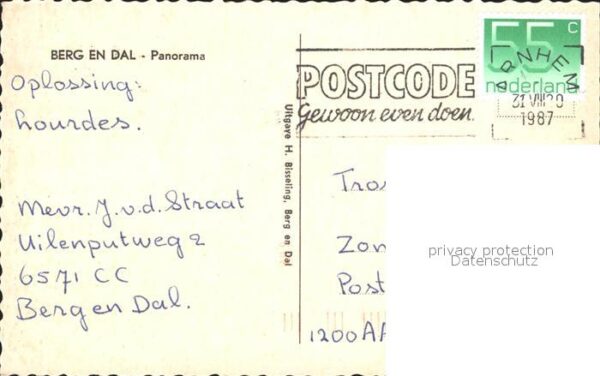 BERG EN DAL - Panorama
Oplossing:
Lourdes.
Mevr. J. v. d. Straat
Uilenputweg 2
6571 CC
Berg en Dal.
Uitgave H. Bisseling, Berg en Dal
POSTCODE
Gewoon even doen.
55 c
nederland
ARNHEM
31 VIII 20
1987
Tros
Zon
Post
1200AA
privacy protection
Datenschutz